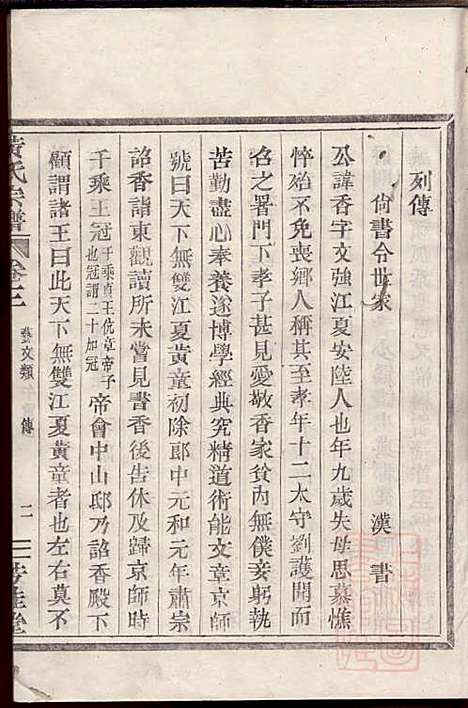 列傳
尙書令世家 漢書
公諱香字文強江夏安陸人也年九歲失母思慕憔
悴殆不免喪鄉人稱其至孝年十二太守劉護聞而
召之署門下孝子甚見愛敬香家貧內無僕妾躬執
苦勤盡心奉養遂博學經典究精道術能文章京師
號曰天下無雙江夏黃童初除郎中元和元年肅宗
詔香詣東觀讀所未嘗見書香後告休及歸京師時
千乘王冠千乘貞王伉章帝子也冠謂二十加冠帝會中山邸乃詔香殿下
顧謂諸王曰此天下無雙江夏黃童者也左右莫不
黃氏宗譜 卷之二 藝文類 傳 二